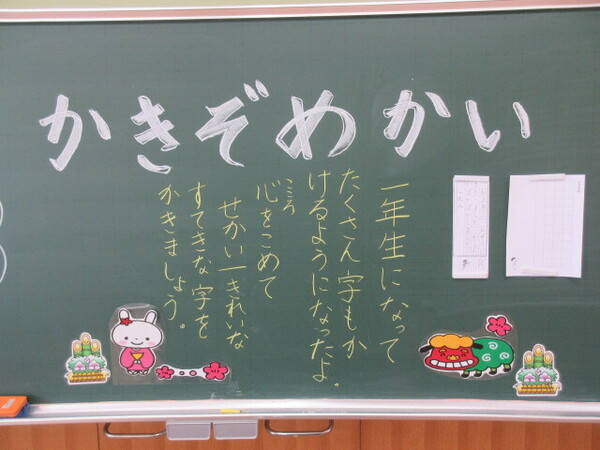 かきぞめかい
一年生になって
たくさん字もか
けるようになったよ。
心をこめて
こころ
せかい一きれいな
すてきな字を
かきましょう。